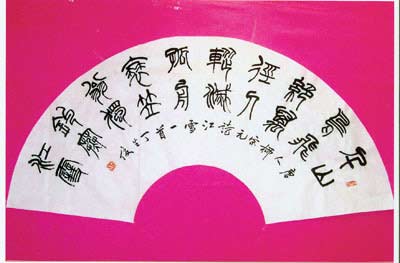 千山
鳥飛
絕萬
徑人
蹤滅
孤舟
蓑笠
翁獨
釣寒
江雪
唐人柳宗元詩江雪一首丁